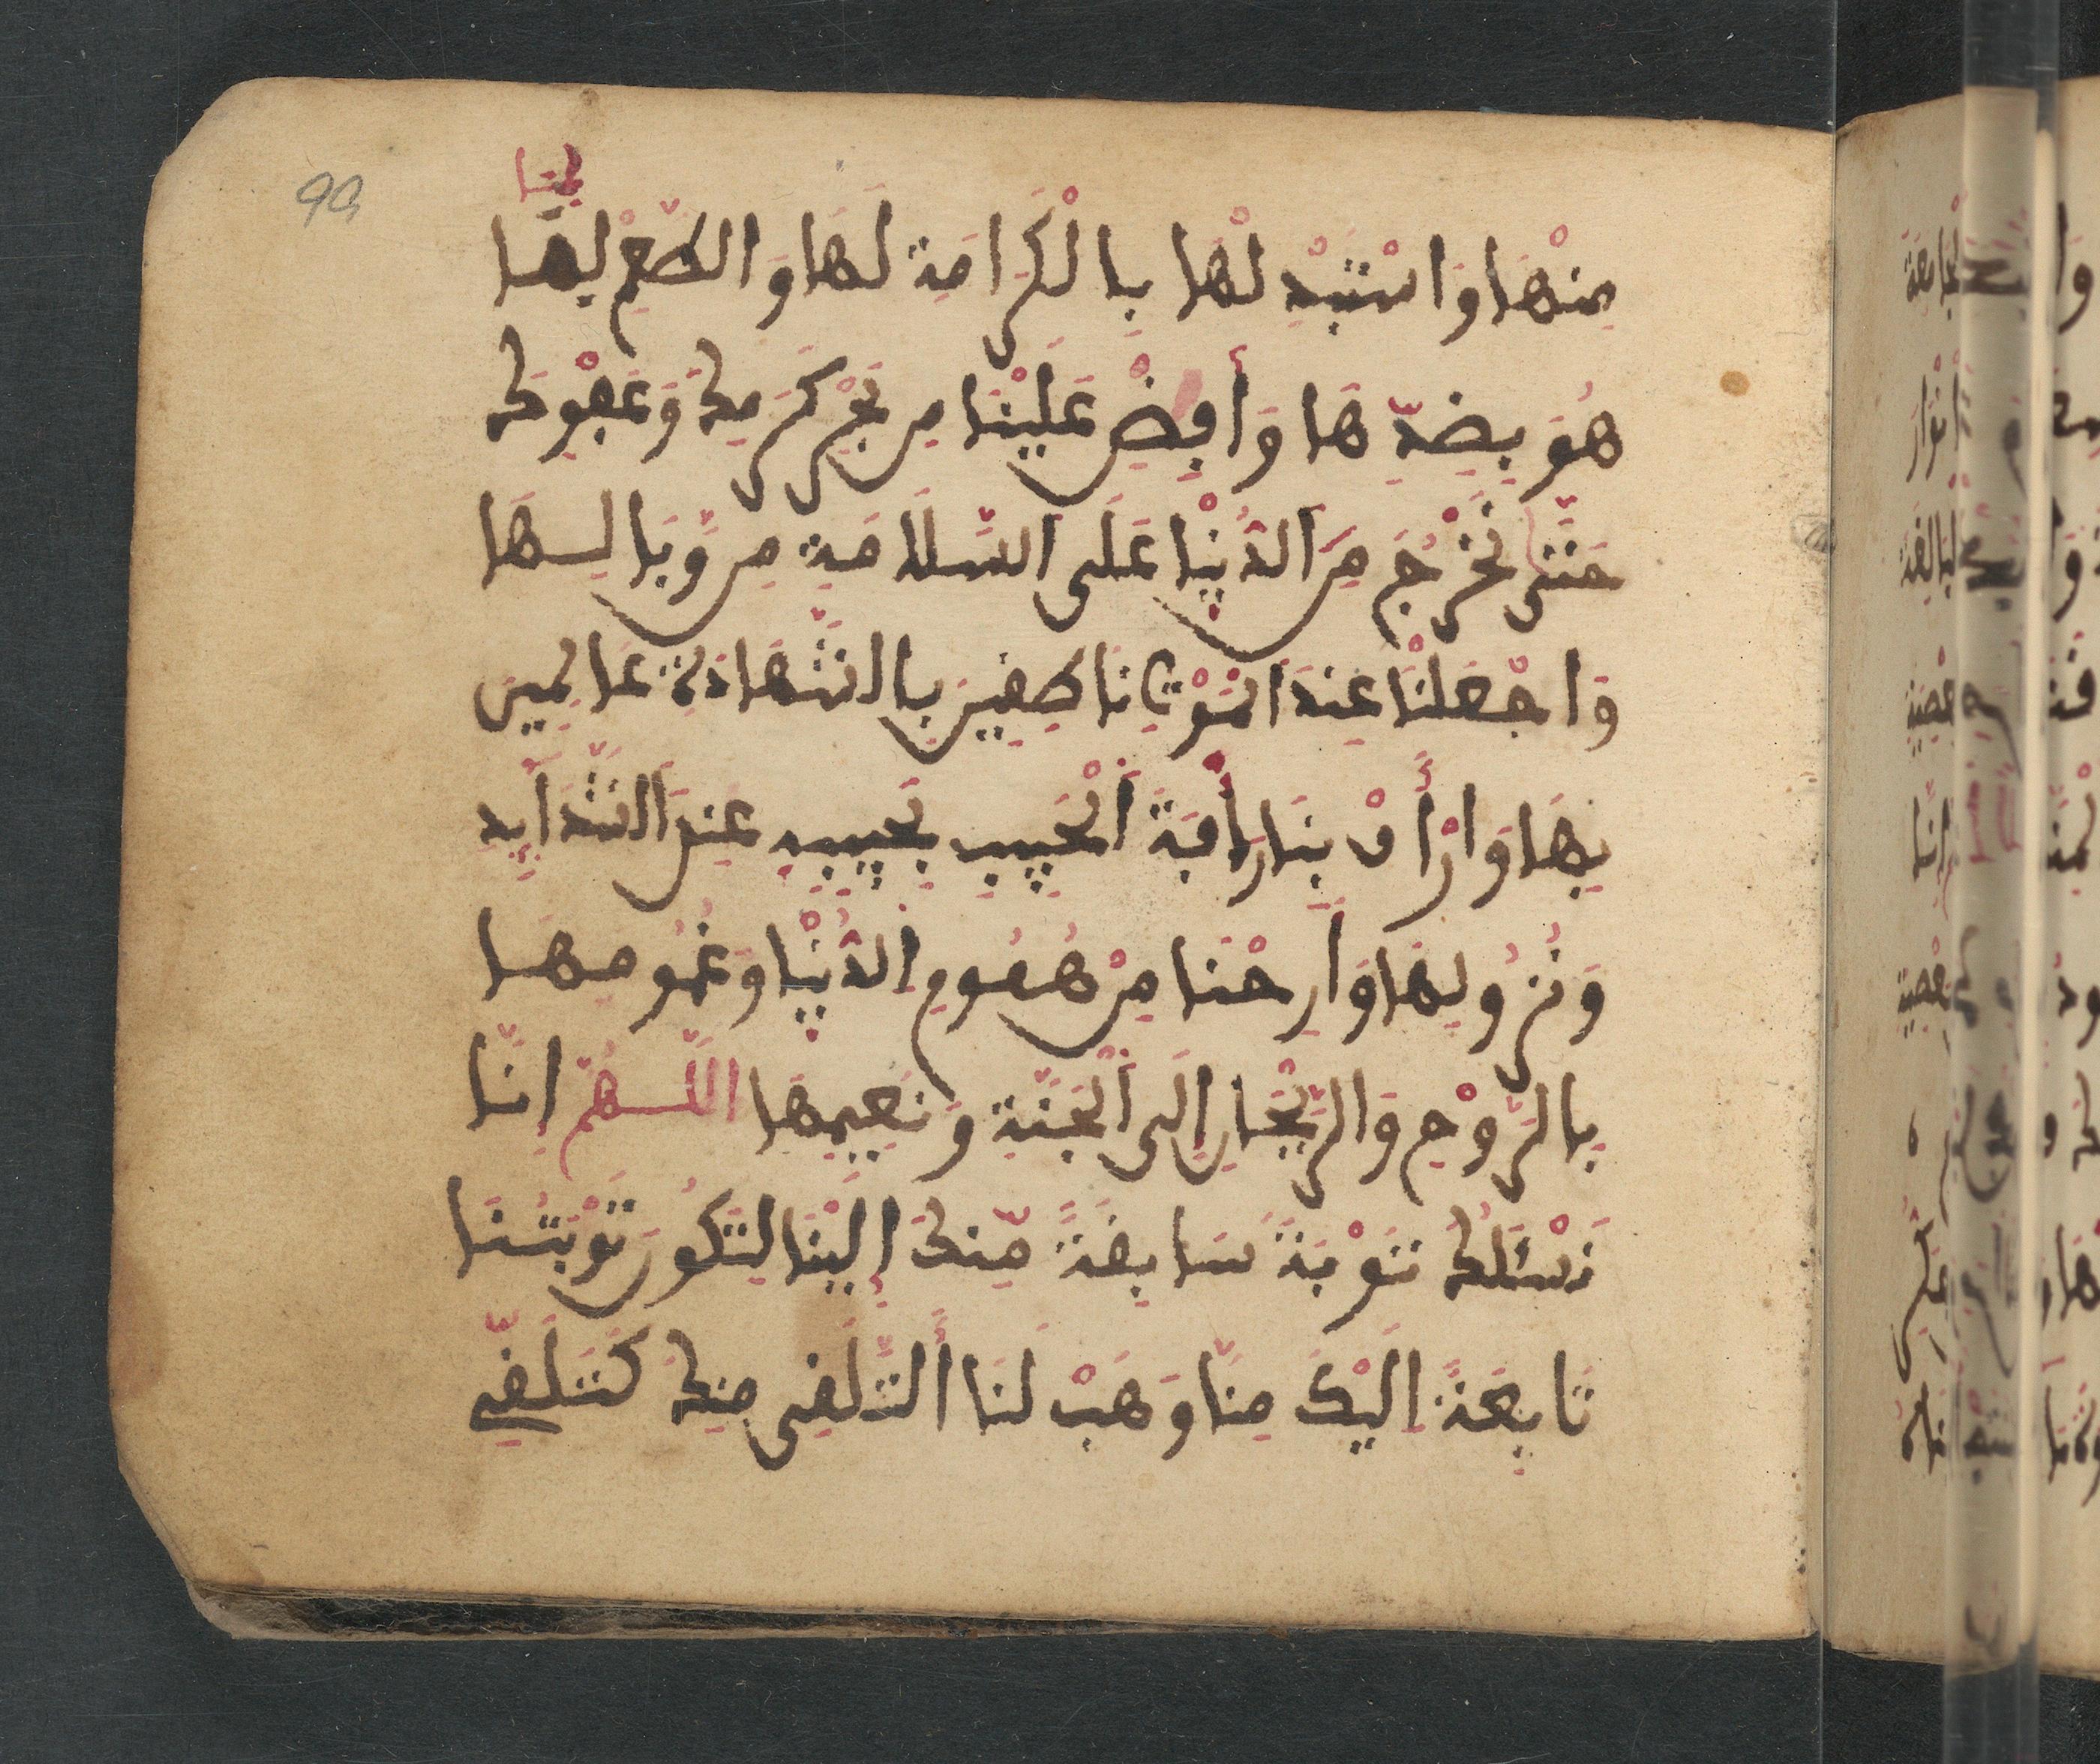 99
لِمَا
مِنْهَا وَاسْتَبْدِلْهَا بِالْكَرَامَةِ لَهَا وَالطَّعْمِ لِمَا
هُوَ بِضِدِّهَا وَأَفِضْ عَلَيْنَا مِن بَحْرِ كَرَمِكَ وَعَفْوِكَ
حَتَّى نَخْرُجَ مِنَ الدُّنْيَا عَلَى السَّلَامَةِ مِن وَّبَالِهَا
وَاجْعَلْنَا عِندَ الْمَوْتِ نَاطِقِينَ بِالشَّهَادَةِ عَالِمِينَ
بِهَا وَارْأَفْ بِنَا رَأْفَةَ الْحَبِيبِ بِحَبِيبِهِ عِندَ الشَّدَائِدِ
وَنُزُولِهَا وَأَرِحْنَا مِنْ هُمُومِ الدُّنْيَا وَغُمُومِهَا
بِالرَّوْحِ وَالرَّيْحَانِ إِلَى الْجَنَّةِ وَنَعِيمِهَا اللَّهُمَّ إِنَّا
نَسْئَلُكَ تَوْبَةً سَابِقَةً مِّنكَ إِلَيْنَا لِتَكُونَ تَوْبَتُنَا
تَابِعَةً إِلَيْكَ مِنَّا وَهَبْ لَنَا التَّلَقِّيَ مِنكَ كَتَلَقِّي